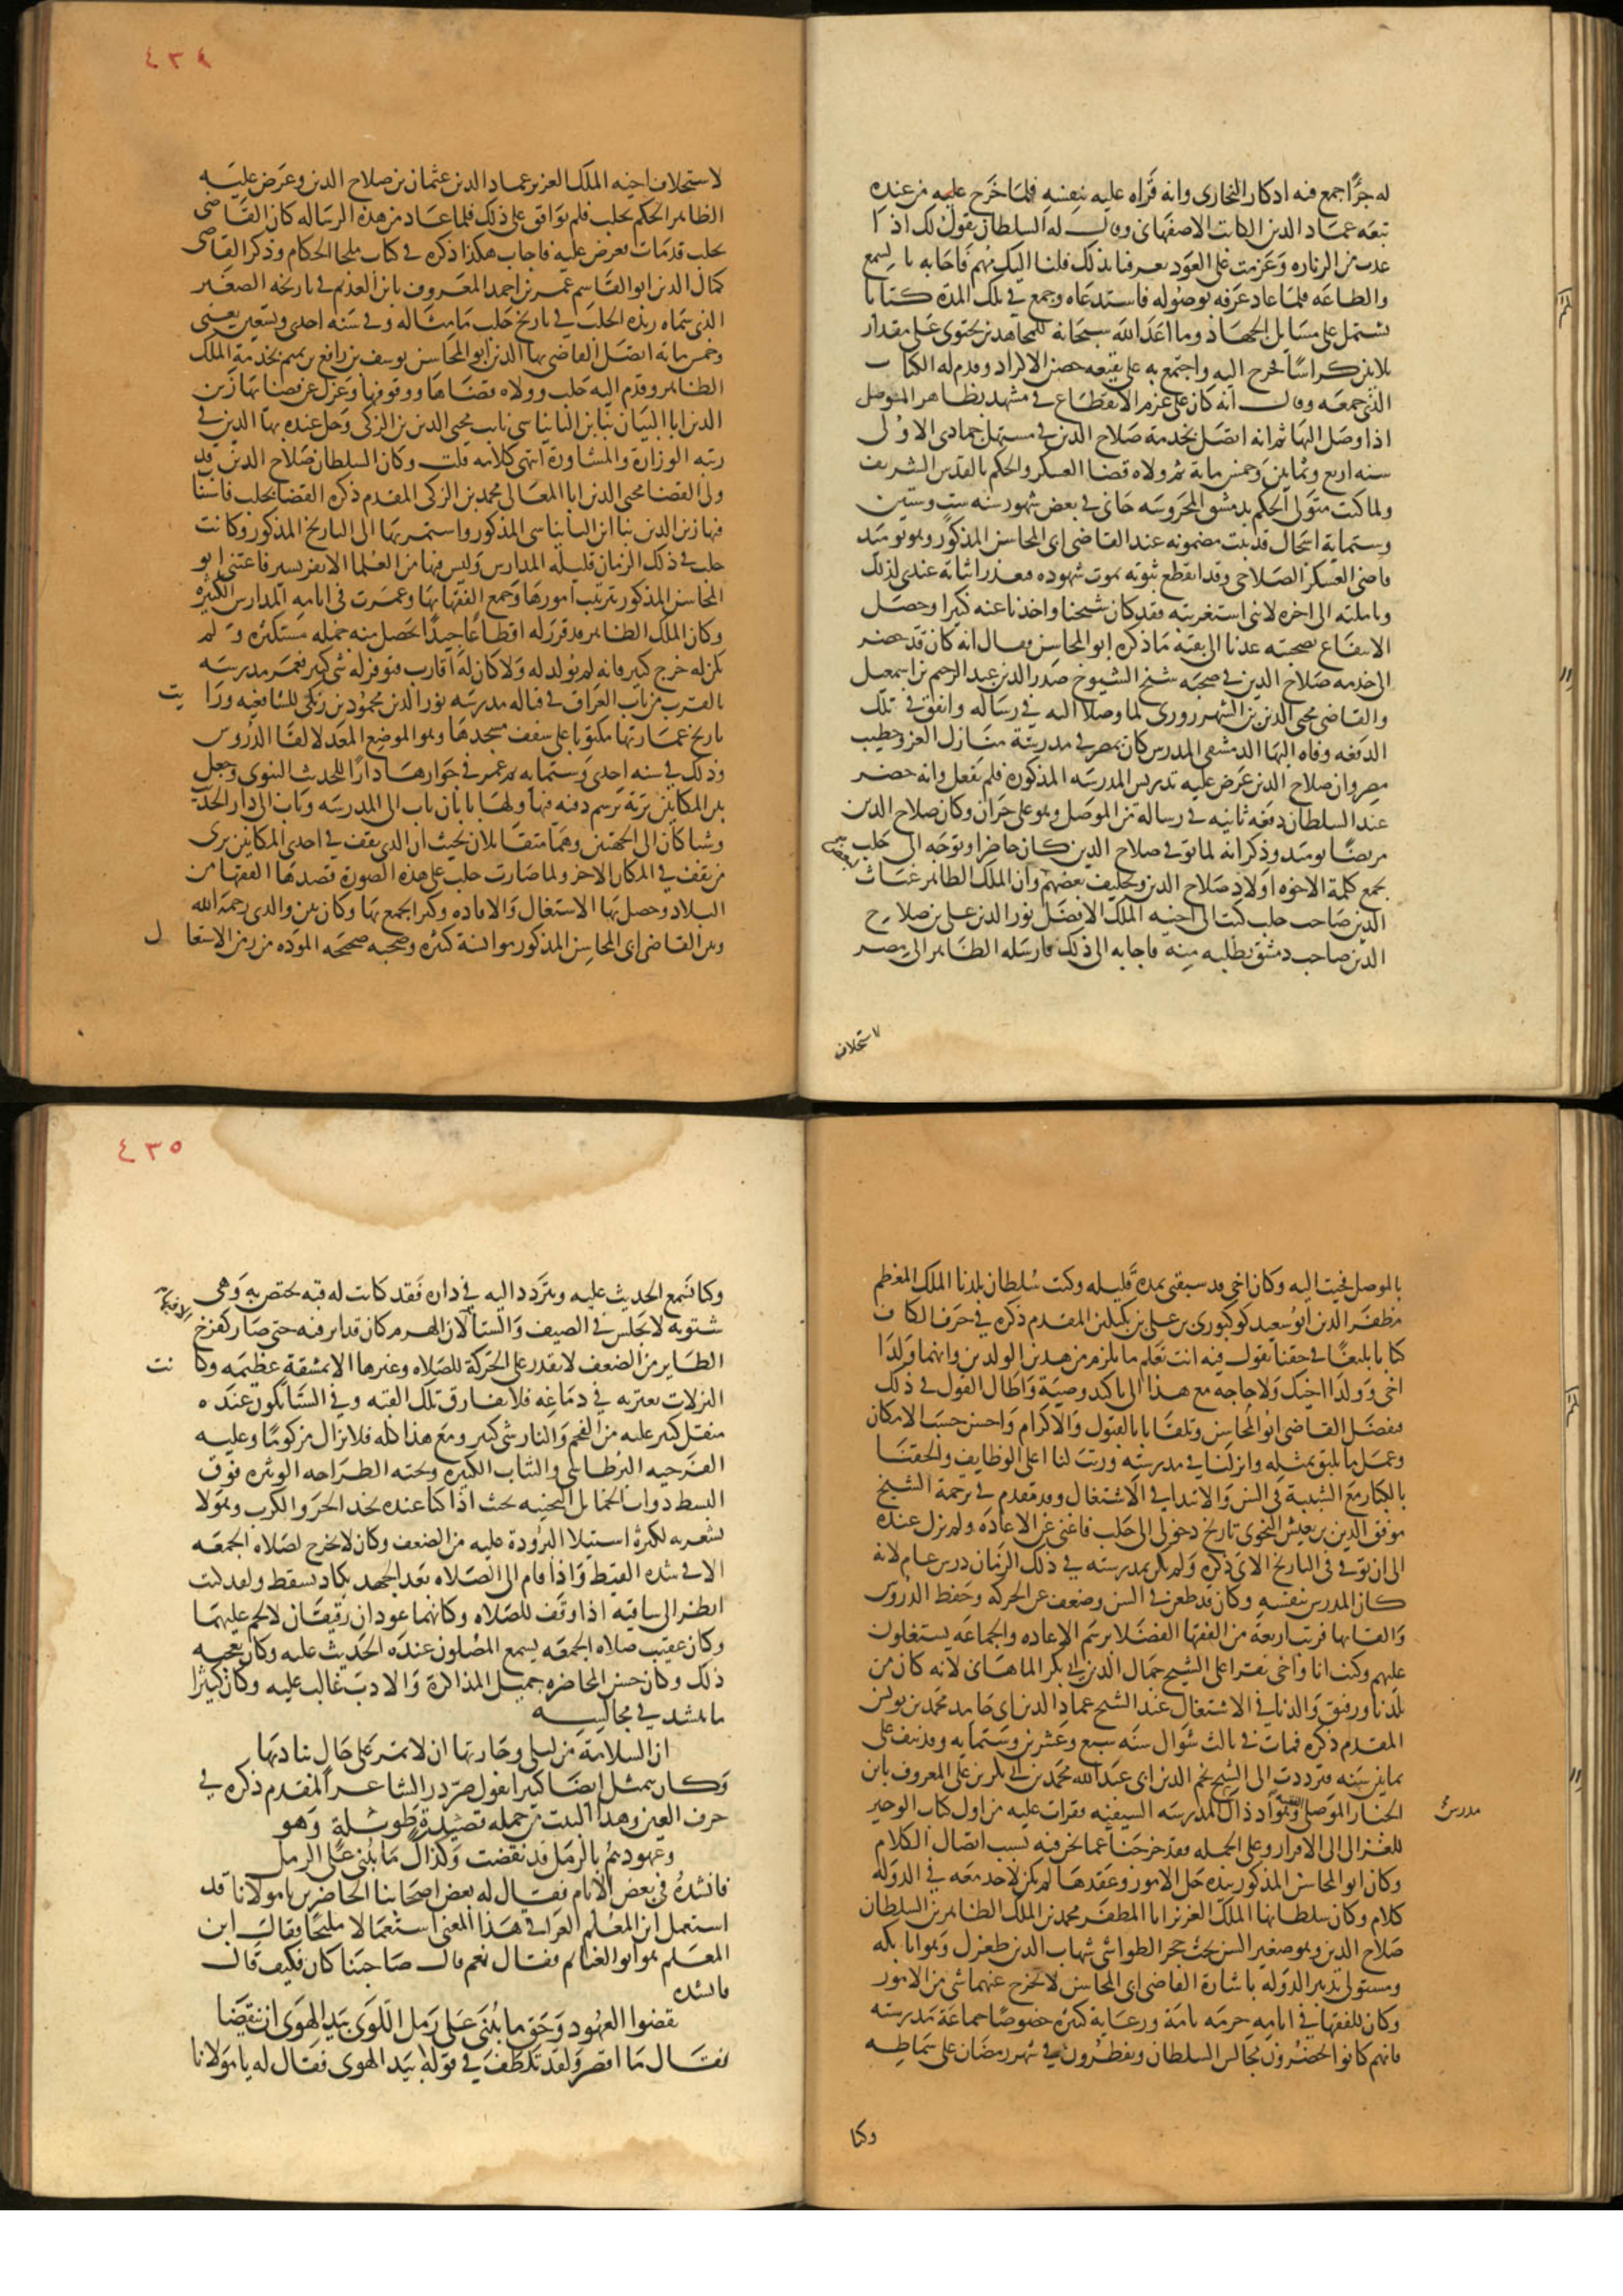 له جزًا جمع فيه اذكار البخارى وانه قراه عليه بنفسه فلما خرج عليه من عنده
تبعه عماد الدين الكاتب الاصفهانى وقال له السلطان يقول لك اذا
عدت من الزياره وعزمت على العود يعرفنا بذلك فلنا اليك مهم فاجابه بالسمع
والطاعه فلما عاد عرفه بوصوله فاستدعاه وجمع فى تلك المدة كتابا
يشتمل على مسايل الجهاد وما اعد الله سبحانه للمجاهدين يحتوى على مقدار
ثلاثين كراسًا فخرج اليه واجتمع به على بقيعه حصن الاكراد وقدم له الكتاب
الذى جمعه وقال انه كان على عزم الانقطاع فى مشهد بظاهر الموصل
اذا وصل اليها ثم انه اتصل بخدمة صلاح الدين فى مستهل جمادى الاولى
سنه اربع وثمانين وخمس ماية ثم ولاه قضا العسكر والحكم بالقدس الشريف
ولما كنت متولى الحكم بدمشق المحروسه جانى فى بعض شهور سنه ست وستين
وستماية اسجال قد ثبت مضمونه عند القاضى ابى المحاسن المذكور وهو يوميذ
قاضى العسكر الصلاحى وقد انقطع ثبوته بموت شهوده فتعذر اثباته عندى لذلك
وتاملته الى اخره لانى استغربته فقد كان شيخنا واخذنا عنه كثيرا وحصل
الانتفاع بصحبته عدنا الى بقية ما ذكره ابو المحاسن وقال انه كان قد حضر
الى خدمه صلاح الدين فى صحبة شيخ الشيوخ صدر الدين عبد الرحيم بن اسمعيل
والقاضى محيى الدين بن الشهرزورى لما وصلا اليه فى رساله واتفق فى تلك
الدفعه وفاه البها الدمشقى المدرس كان بمصر فى مدرسة منازل العز وخطيب
مصر وان صلاح الدين عرض عليه تدريس المدرسه المذكوره فلم يفعل وانه حضر
عند السلطان دفعه ثانيه فى رسالة من الموصل وهو على حران وكان صلاح الدين
مريضًا يوميذ وذكر انه لما توفى صلاح الدين كان حاضرا وتوجه الى حلب
لبعض
يجمع كلمة الاخوه اولاد صلاح الدين وتحليف بعضهم وان الملك الظاهر غياث
الدين صاحب حلب كتب الى اخيه الملك الافضل نور الدين على بن صلاح
الدين صاحب دمشق يطلبه منه فاجابه الى ذلك فارسله الظاهر الى مصر
لاستحلاف
٤٣٤
لاستحلاف اخيه الملك العزيز عماد الدين عثمان بن صلاح الدين وعرض عليه
الظاهر الحكم بحلب فلم يوافق على ذلك فلما عاد من هذه الرساله كان القاضى
بحلب قد مات فعرض عليه فاجاب هكذا ذكره فى كتاب ملجا الحكام وذكر القاضى
كمال الدين ابو القاسم عمر بن احمد المعروف بابن العديم فى تاريخه الصغير
الذى سماه زبدة الحلب فى تاريخ حلب ما مثاله وفى سنه احدى وتسعين يعنى
وخمس ماية اتصل القاضى بها الدين ابو المحاسن يوسف بن رافع بن تميم بخدمة الملك
الظاهر وقدم اليه حلب وولاه قضاها ووقوفها وعزل عن قضايها زين
الدين ابا البيان نبا بن البانياسى نايب محيى الدين بن الزكى وحل عنده بها الدين فى
رتبه الوزارة والمشاورة انتهى كلامه قلت وكان السلطان صلاح الدين قد
ولى القضا محيى الدين ابا المعالى محمد بن الزكى المقدم ذكره القضا بحلب فاستناب
فيها زين الدين نبا ابن البانياسى المذكور واستمر بها الى التاريخ المذكور وكانت
حلب فى ذلك الزمان قليله المدارس وليس فيها من العلما الا نفر يسير فاعتنى ابو
المحاسن المذكور بترتيب امورها وجمع الفقها بها وعمرت فى ايامه المدارس الكثيره
وكان الملك الظاهر قد قرر له اقطاعًا جيدًا يحصل منه جمله مستكثره ولم
يكن له خرج كثير فانه لم يولد له ولا كان له اقارب فتوفر له شى كثير فعمر مدرسه
بالقرب من باب العراق فى قباله مدرسه نور الدين محمود بن زنكى للشافعيه ورايت
تاريخ عمارتها مكتوبا على سقف مسجدها وهو الموضع المعد لالقا الدروس
وذلك فى سنه احدى وستمايه ثم عمر فى جوارها دارًا للحديث النبوى وجعل
بين المكانين تربة برسم دفنه فيها ولها بابان باب الى المدرسه وباب الى دار الحديث
وشباكان الى الجهتين وهما متقابلان بحيث ان الذى يقف فى احدى المكانين يرى
من يقف فى المكان الاخر ولما صارت حلب على هذه الصورة قصدها الفقها من
البلاد وحصل بها الاشتغال والافاده وكثر الجمع بها وكان بين والدى رحمه الله
وبين القاضى ابى المحاسن المذكور موانسة كثيره وصحبه صحيحه الموده من زمن الاشتغال
بالموصل فجيت اليه وكان اخى قد سبقنى بمدة قليله وكتب سلطان بلدنا الملك المعظم
مظفر الدين ابو سعيد كوكبورى بن على بن بكتكين المقدم ذكره فى حرف الكاف
كتابا بليغًا فى حقنا يقول فيه انت تعلم ما يلزم من هذين الولدين وانهما ولدا
اخى وولدا اخيك ولا حاجه مع هذا الى تاكيد وصية واطال القول فى ذلك
فتفضل القاضى ابو المحاسن وتلقانا بالقبول والاكرام واحسن حسب الامكان
وعمل ما يليق بمثله وانزلنا فى مدرسته ورتب لنا اعلى الوظايف والحقنا
بالكبار مع الشبيبة فى السن والابتدا فى الاشتغال وقد تقدم فى ترجمة الشيخ
موفق الدين بن يعيش النحوى تاريخ دخولى الى حلب فاغنى عن الاعاده ولم نزل عنده
الى ان توفى فى التاريخ الاتى ذكره ولم يكن بمدرسته فى ذلك الزمان درس عام لانه
كان المدرس بنفسه وكان قد طعن فى السن وضعف عن الحركة وحفظ الدروس
والقايها فرتب اربعة من الفقها الفضلا برسم الاعاده والجماعه يشتغلون
عليهم وكنت انا واخى نقرا على الشيخ جمال الدين ابى بكر الماهانى لانه كان من
بلدنا ورفيق والدنا فى الاشتغال عند الشيخ عماد الدين ابى حامد محمد بن يونس
المقدم ذكره فمات فى ثالث شوال سنه سبع وعشرين وستمايه وقد نيف على
ثمانين سنه فترددت الى الشيخ نجم الدين ابى عبد الله محمد بن ابى بكر بن على المعروف بابن
الخباز الموصلى وهو اذ ذاك المدرسه السيفيه فقرات عليه من اول كتاب الوجيز
مدرس
للغزالى الى الاقرار وعلى الجمله فقد خرجنا عما نحن فيه بسبب اتصال الكلام
وكان ابو المحاسن المذكور بيده حل الامور وعقدها لم يكن لاحد معه فى الدوله
كلام وكان سلطانها الملك العزيز ابا المظفر محمد بن الملك الظاهر بن السلطان
صلاح الدين وهو صغير السن تحت حجر الطواشى شهاب الدين طغرل وهو اتابكه
ومستولى تدبير الدوله باشارة القاضى ابى المحاسن لا يخرج عنهما شى من الامور
وكان للفقها فى ايامه حرمه تامة ورعاية كثيره خصوصًا جماعة مدرسته
فانهم كانوا يحضرون مجالس السلطان ويفطرون فى شهر رمضان على سماطه
وكنا
٤٣٥
وكنا نسمع الحديث عليه ونتردد اليه فى داره فقد كانت له قبه يختص به وهى
شتويه لا يجلس فى الصيف والشتا لان الهرم كان قد اثر فيه حتى صار كفرخ
الا فيها
الطاير من الضعف لا يقدر على الحركة للصلاه وغيرها الا بمشقة عظيمه وكانت
النزلات تعتريه فى دماغه فلا يفارق تلك القبه وفى الشتا يكون عنده
منقل كبير عليه من الفحم والنار شى كثير ومع هذا كله فلا يزال مزكومًا وعليه
الفرجيه البرطاسى والثياب الكثيره وتحته الطراحه الوثيره فوق
البسط ذوات الخمايل الثخينه بحيث اذا كنا عنده نجد الحر والكرب وهو لا
يشعر به لكثرة استيلا البرودة عليه من الضعف وكان لا يخرج لصلاه الجمعه
الا فى شده القيظ واذا قام الى الصلاه بعد الجهد يكاد يسقط ولقد كنت
انظر الى ساقيه اذا وقف للصلاه وكانهما عودان رقيقان لا لحم عليهما
وكان عقيب صلاه الجمعه يسمع المصلون عنده الحديث عليه وكان يعجبه
ذلك وكان حسن المحاضره جميل المذاكرة والادب غالب عليه وكان كثيرًا
ما ينشد فى مجالسه
ان السلامة من ليلى وجارتها ان لا تمر على حال بناديها
وكان يتمثل ايضا كثيرا بقول صردر الشاعر المقدم ذكره فى
حرف العين وهذا البيت من جمله قصيدة طويلة وهو
وعهودهم بالرمل قد نقضت وكذاك ما يبنى على الرمل
فانشده فى بعض الايام فقال له بعض اصحابنا الحاضرين يا مولانا قد
استعمل ابن المعلم العراقى هذا المعنى استعمالا مليحًا فقال ابن
المعلم هو ابو الغنايم فقال نعم قال صاحبنا كان فكيف قال
فانشده
نقضوا العهود وحق ما يبنى على رمل اللوى بيد الهوى ان ينقضا
فقال ما اقصر ولقد تلطف فى قوله بيد الهوى فقال له يا مولانا